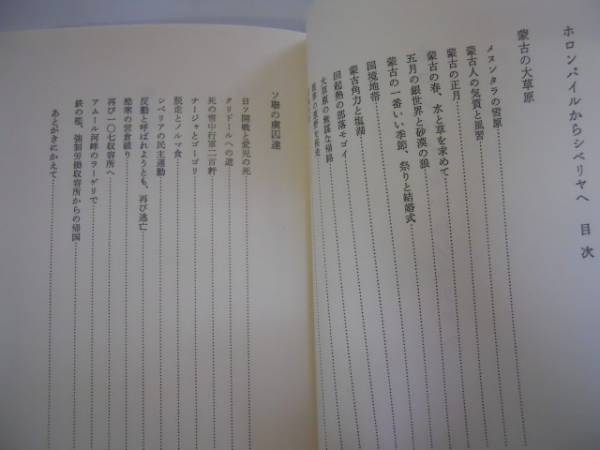 ホロンバイルからシベリヤへ 目次
蒙古の大草原
メヌンタラの雪原
蒙古人の気質と風習
蒙古の正月
蒙古の春、水と草を求めて
五月の銀世界と砂漠の狼
蒙古の一番いい季節、祭りと結婚式
国境地帯
蒙古角力と塩湖
回帰熱の部落モゴイ
ソ聯の虜囚達
日ソ開戦と愛児の死
クリドールへの道
死の雪中行軍二百粁
ナージャとゴーゴリ
脱走とノルマ食
シベリアの民主運動
反動と呼ばれようとも、再び逃亡
酷寒の営倉破り
再び一〇七収容所へ
アムール河畔のラーゲリで
鉄の柩、強制労働収容所からの帰国
あとがきにかえて